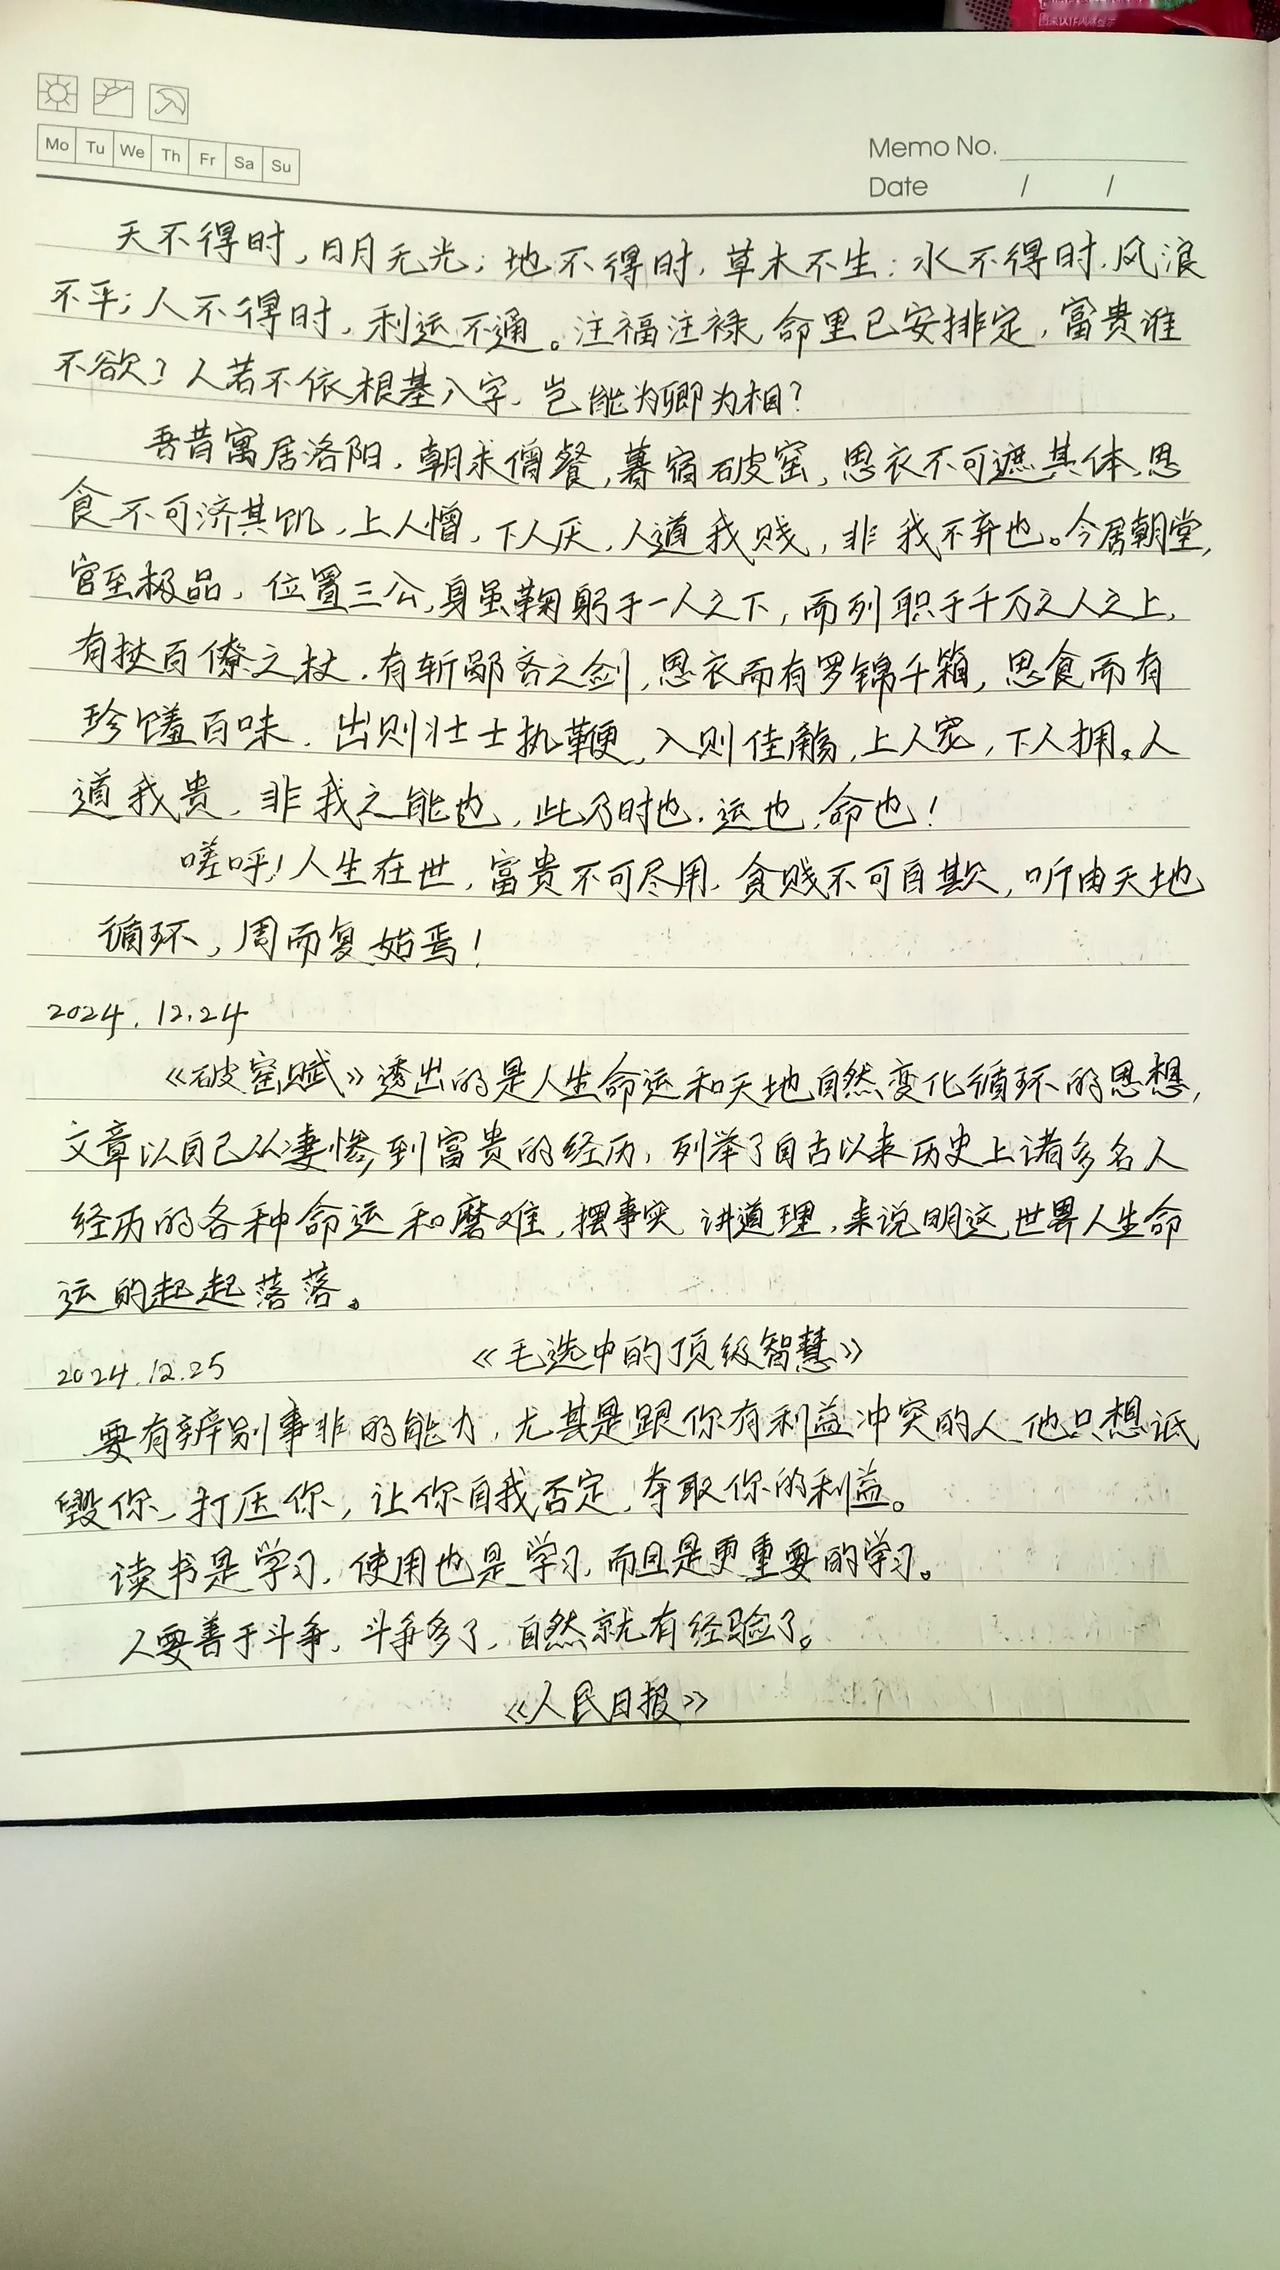 Mo Tu We Th Fr Sa Su
Memo No.
Date / /
天不得时，日月无光；地不得时，草木不生；水不得时，风浪
不平；人不得时，利运不通。注福注禄，命里已安排定，富贵谁
不欲？人若不依根基八字，岂能为卿为相？
吾昔寓居洛阳，朝求僧餐，暮宿破窑，思衣不可遮其体，思
食不可济其饥，上人憎，下人厌，人道我贱，非我不弃也。今居朝堂，
官至极品，位置三公，身虽鞠躬于一人之下，而列职于千万之人之上，
有挞百僚之杖，有斩鄙吝之剑，思衣而有罗锦千箱，思食而有
珍馐百味，出则壮士执鞭，入则佳觞，上人宠，下人拥。人
道我贵，非我之能也，此乃时也，运也，命也！
嗟呼！人生在世，富贵不可尽用，贪贱不可自欺，听由天地
循环，周而复始焉！
2024.12.24
《破窑赋》透出的是人生命运和天地自然变化循环的思想，
文章以自己从凄惨到富贵的经历，列举了自古以来历史上诸多名人
经历的各种命运和磨难，摆事实，讲道理，来说明这世界人生命
运的起起落落。
2024.12.25 《毛选中的顶级智慧》
要有辨别事非的能力，尤其是跟你有利益冲突的人，他只想诋
毁你，打压你，让你自我否定，夺取你的利益。
读书是学习，使用也是学习，而且是更重要的学习。
人要善于斗争，斗争多了，自然就有经验了。
《人民日报》